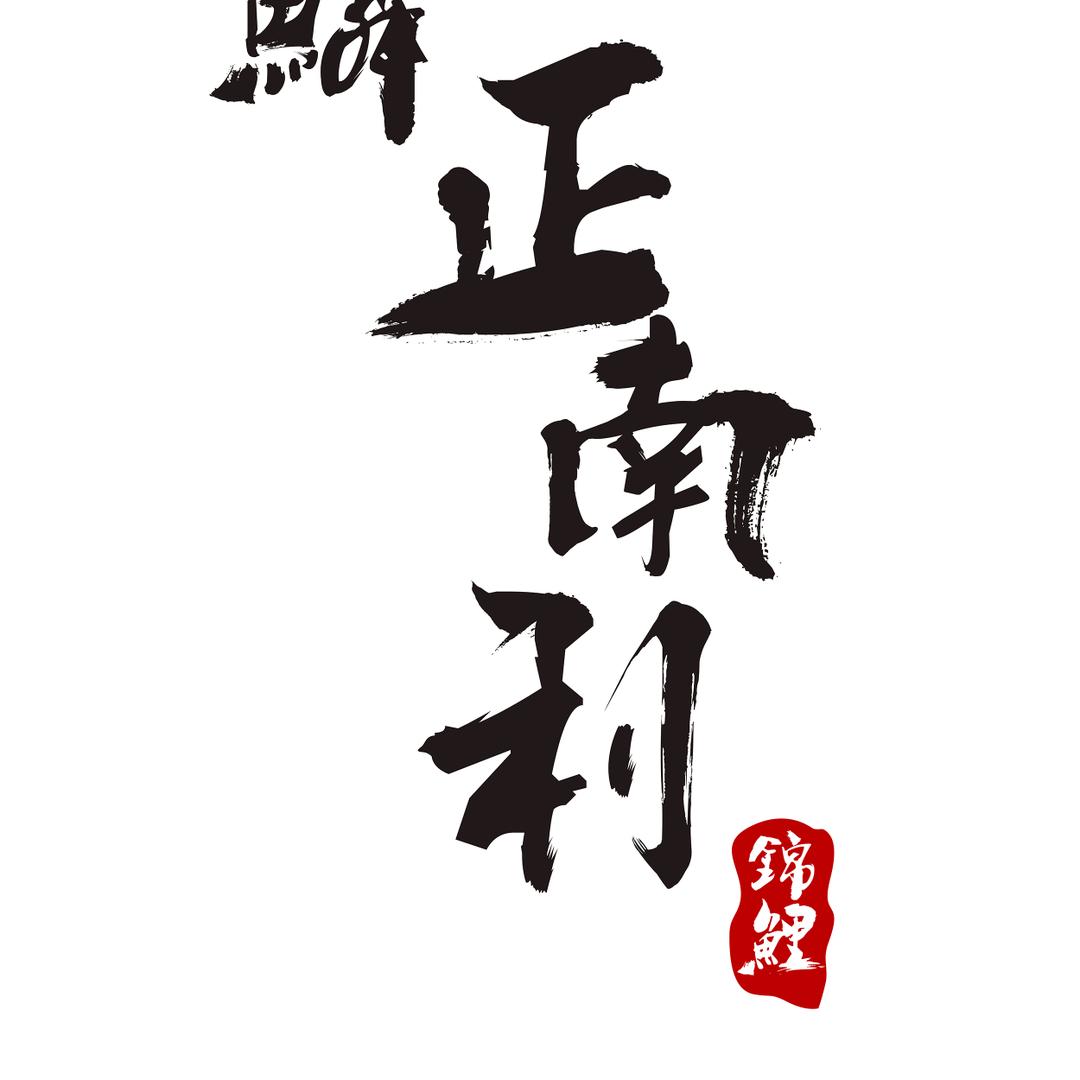 正南利
錦鯉